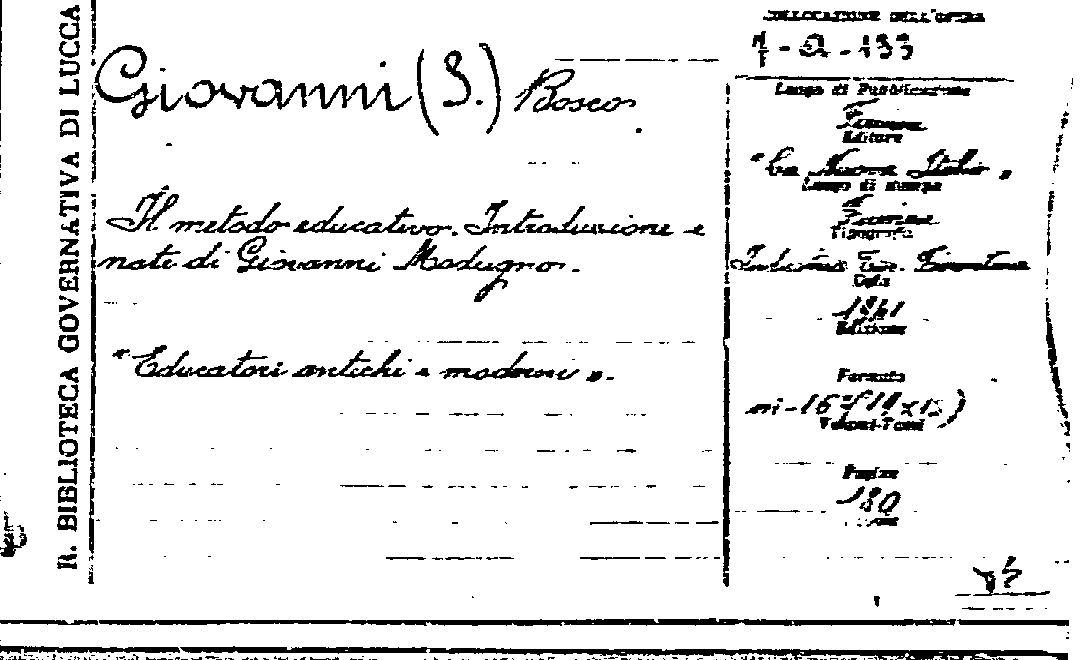 R. BIBLIOTECA GOVERNATIVA DI LUCCA
Giovanni (S.) Bosco.
Il metodo educativo. Introduzione e
note di Giovanni Modugno.
"Educatori antichi e moderni".
COLLOCAZIONE DELL'OPERA
Luogo di Pubblicazione
Firenze
Editore
"La Nuova Italia"
Luogo di stampa
Firenze
Tipografia
Industria Tip. Fiorentina
Data
1941
Edizione
Formato
in-16°(19x13)
Volumi-Tomi
Pagine
180